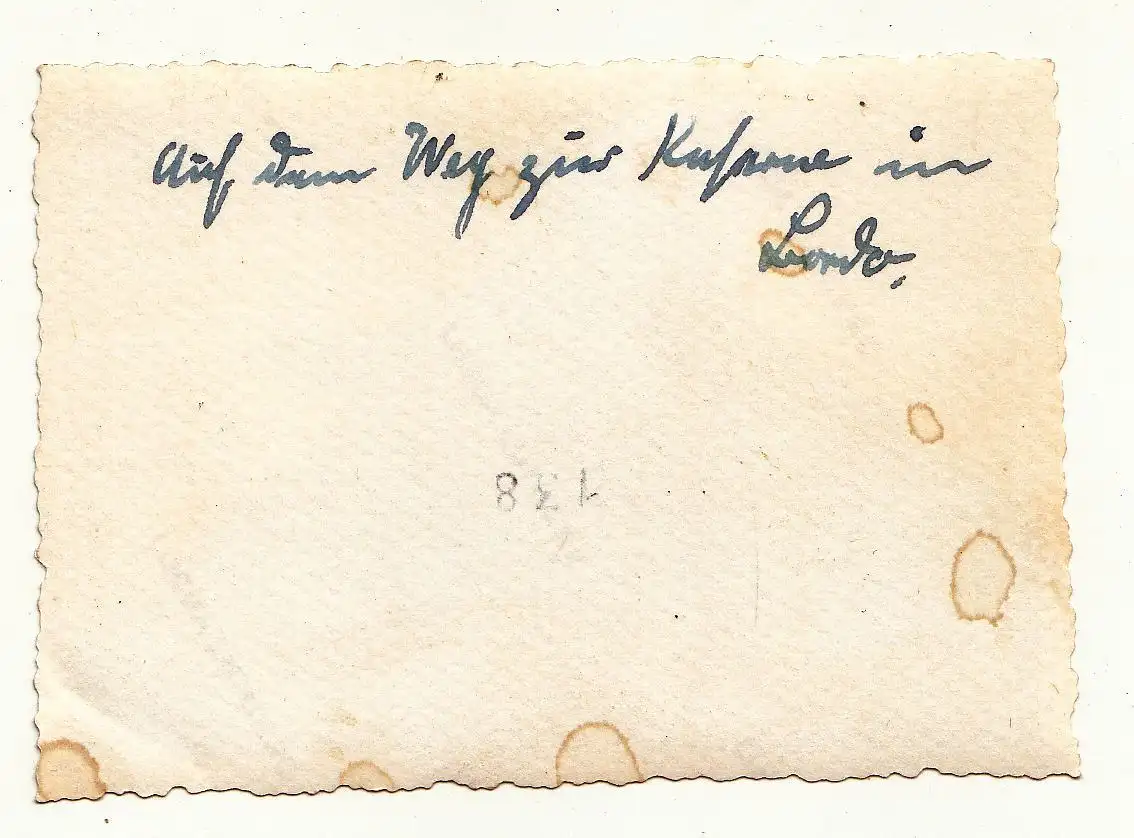 Auf dem Weg zur Kaserne in
138